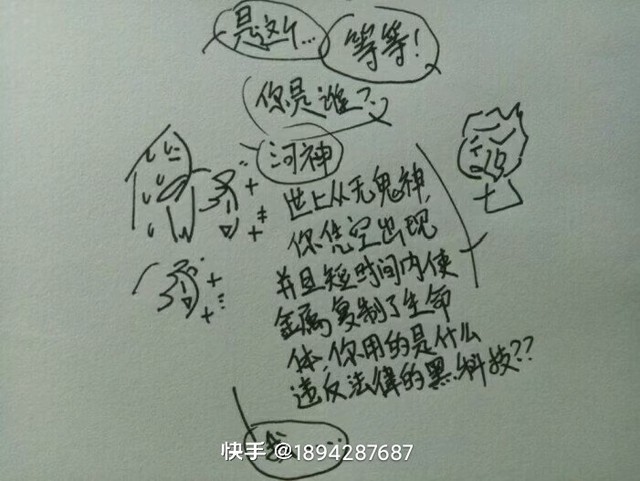 是这个...
等等!
你是谁?
河神
世上从无鬼神,
你凭空出现
并且短时间内使
金属复制了生命
体,你用的是什么
违反法律的黑科技??
我...
快手 @1894287687